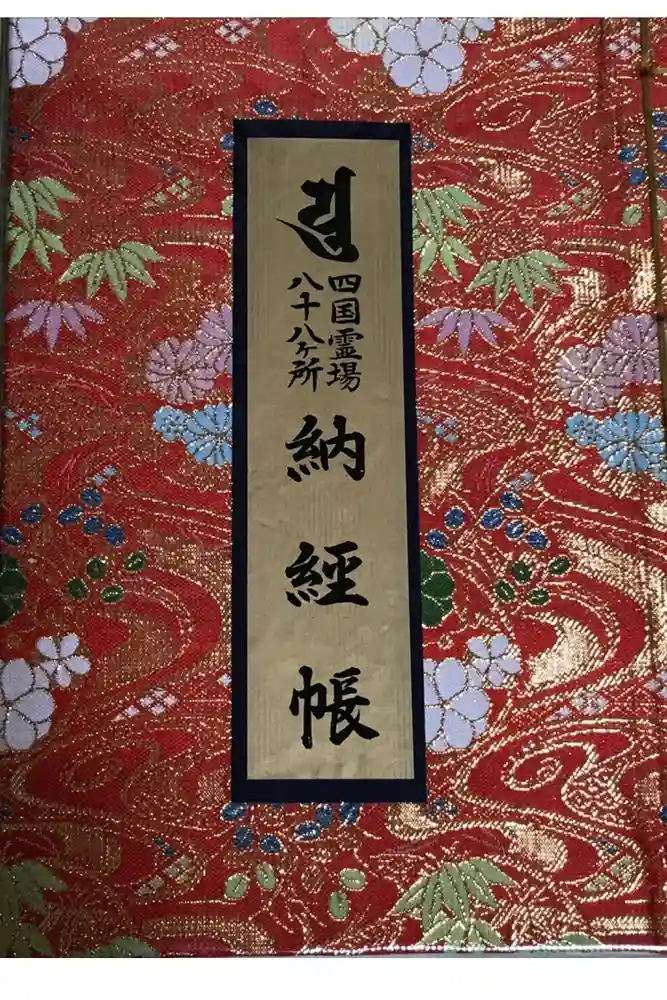 四国霊場
八十八ヶ所
納經帳